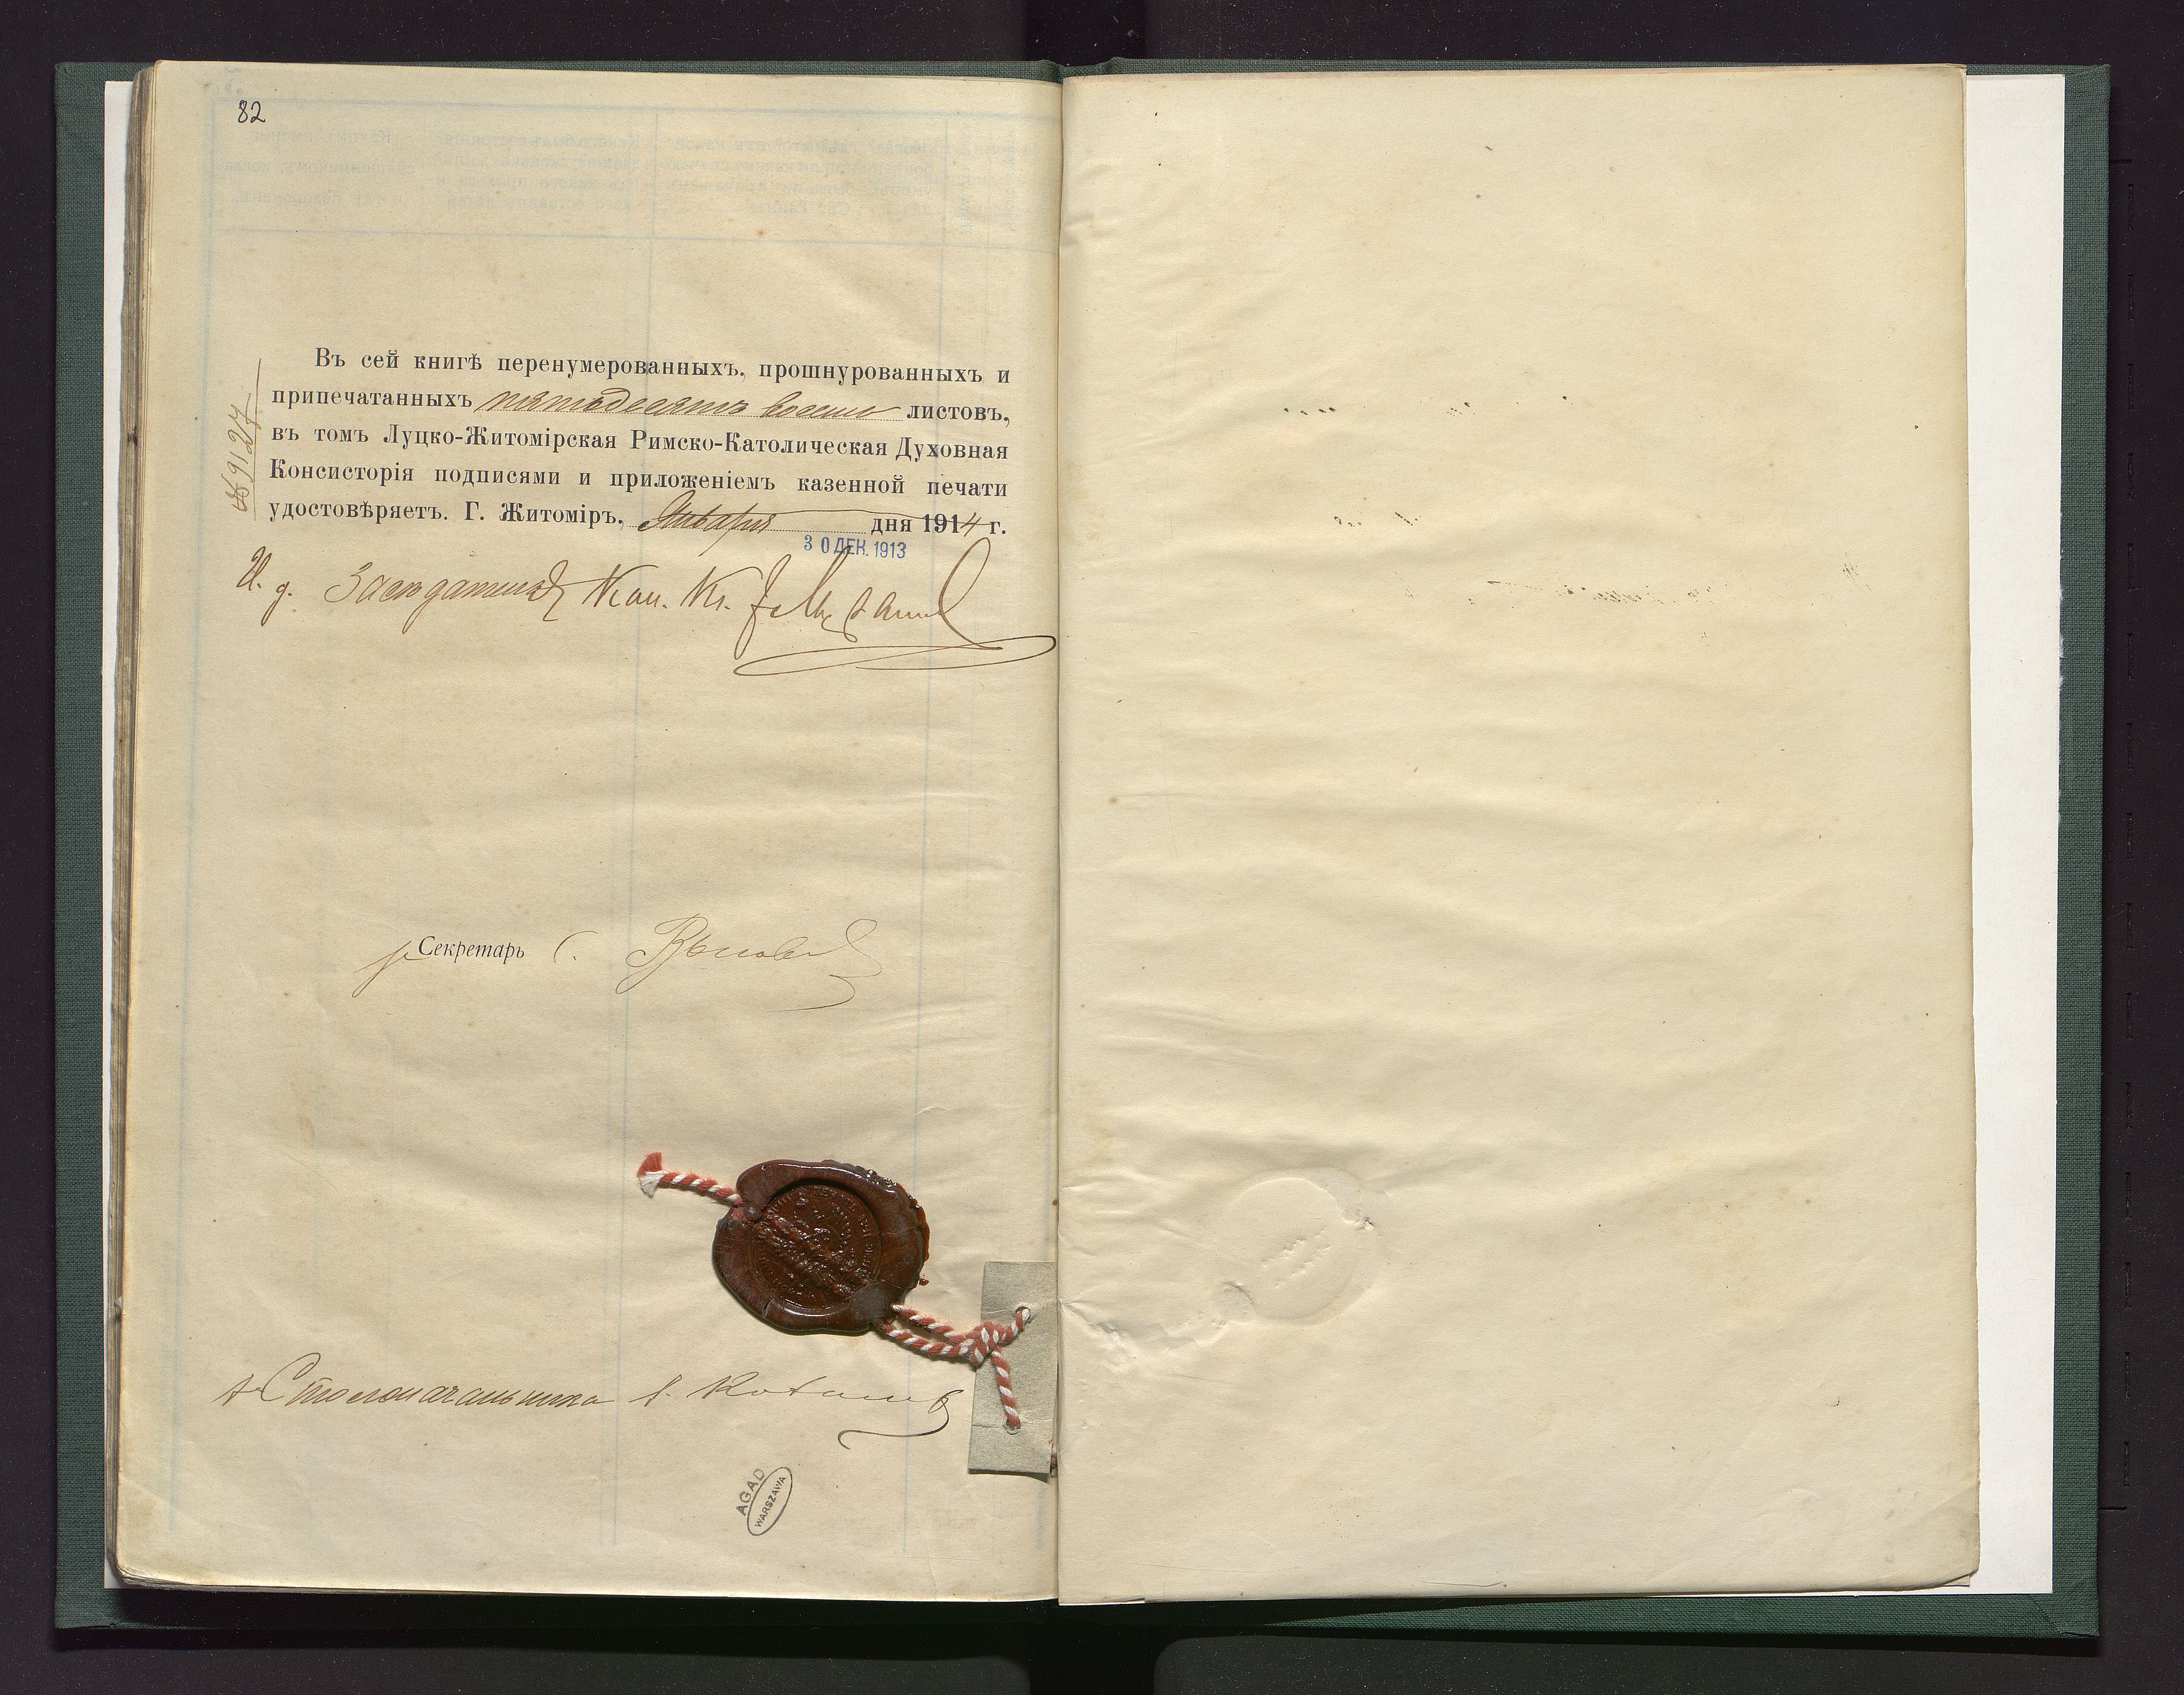 82
Въ сей книгѣ перенумерованныхъ, прошнурованныхъ и
припечатанныхъ пятьдесятъ восемь листовъ,
въ томъ Луцко-Житомірская Римско-Католическая Духовная
Консисторія подписями и приложеніемъ казенной печати
удостовѣряетъ. Г. Житоміръ, Января дня 1914 г.
30 ДЕК. 1913
И. д. Засѣдателя Кан. Кс.
Секретарь С.
Столоначальника
AGAD
WARSZAWA